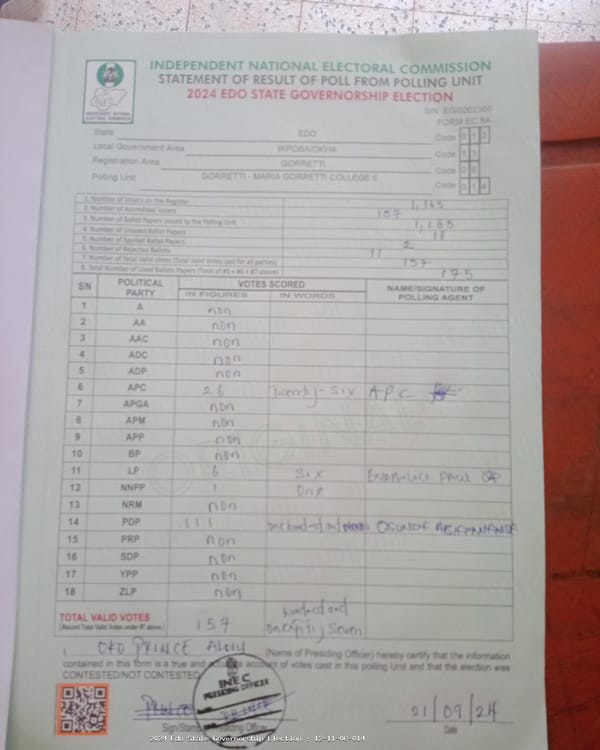 INDEPENDENT NATIONAL ELECTORAL COMMISSION
STATEMENT OF RESULT OF POLL FROM POLLING UNIT
2024 EDO STATE GOVERNORSHIP ELECTION
INDEPENDENT NATIONAL ELECTORAL COMMISSION
FORM EC 8A
State EDO Code 0 1 2
Local Government Area IKPOBA/OKHA Code 1 1
Registration Area GORRETTI Code 0 6
Polling Unit GORRETTI - MARIA GORRETTI COLLEGE II Code 0 1 4
1. Number of Voters on the Register 1,165
2. Number of Accredited Voters 157
3. Number of Ballot Papers Issued to the Polling Unit 1,165
4. Number of Unused Ballot Papers
5. Number of Spoiled Ballot Papers 2
6. Number of Rejected Ballots 11
7. Number of Total Valid Votes (Total Valid Votes cast for all parties) 157
8. Total Number of Used Ballots Papers (Total of #5 + #6 + #7 above) 175
S/N POLITICAL PARTY VOTES SCORED NAME/SIGNATURE OF POLLING AGENT
IN FIGURES IN WORDS
1 A non
2 AA non
3 AAC non
4 ADC non
5 ADP non
6 APC 26 Twenty-Six APC
7 APGA non
8 APM non
9 APP non
10 BP non
11 LP 6 Six PAUL
12 NNPP 1 One
13 NRM non
14 PDP 111 one hundred and
15 PRP non
16 SDP non
17 YPP non
18 ZLP non
TOTAL VALID VOTES 157 hundred and
(Record Total Valid Votes under #7 above) Seven
I, PRINCE (Name of Presiding Officer) hereby certify that the information
contained in this form is a true and account of votes cast in this polling Unit and that the election was
CONTESTED/NOT CONTESTED
INEC
PRESIDING OFFICER
21/09/24
Officer Date
2024 Edo State Governorship Election : 12-11-06-014